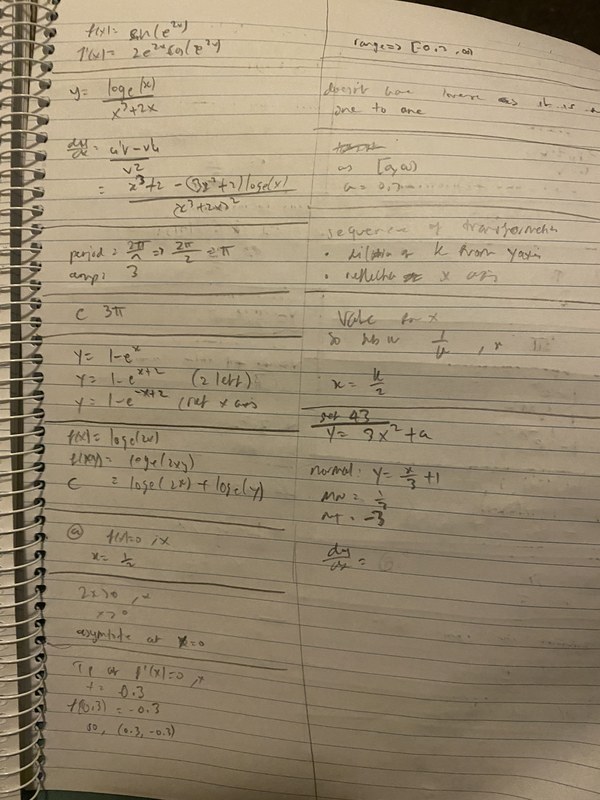 f(x) = sin(e^{2x})
f'(x) = 2e^{2x} cos(e^{2x})
y = log_e(x) / x^3+2x
dy/dx = u'v - vu / v^2
= x^3+2 - (3x^2+2) log_e(x) / (x^3+2x)^2
period = 2π/n => 2π/2 = π
amp: 3
C 3π
y = 1-e^x
y = 1-e^{x+2} (2 left)
y = 1-e^{-x+2} (ref x axis
f(x) = log_e(2x)
f(xy) = log_e(2xy)
C = log_e(2x) + log_e(y)
(a) f(x)=0, x
x = 1/2
2x>0, x
x>0
asymptote at x=0
TP or f'(x)=0, x
x = 0.3
f(0.3) = -0.3
so, (0.3, -0.3)
range => [-0.3, ∞)
doesn't have inverse as it is
one to one
as [a, ∞)
a = 0.3
sequence of transformation
• dilation of k from y axis
• reflection x axis
Value for x
so sub in 1/k, x
x = k/2
set 43
y = 3x^2 + a
normal: y = x/3 + 1
MN = 1/3
MT = -3
dy/dx =